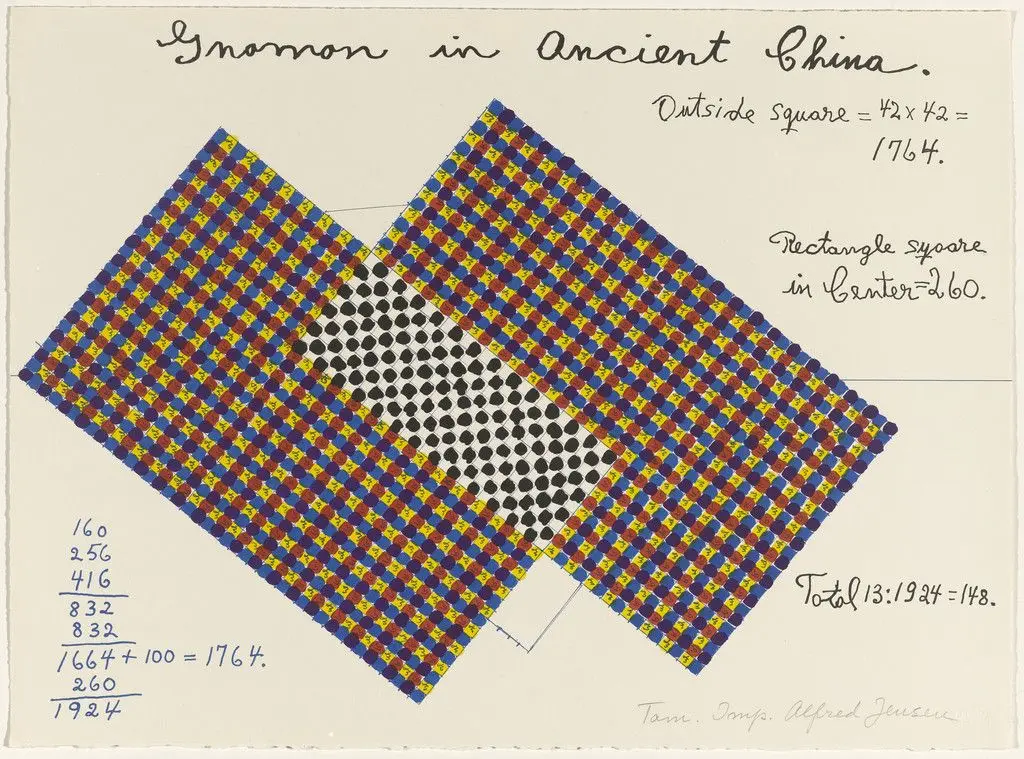 Gnomon in Ancient China.
Outside square = 42 x 42 =
1764.
Rectangle sqoare
in Center=260.
160
256
416
832
832
1664 + 100 = 1764.
260
1924
Total 13:1924 = 148.
Tam. Imp. Alfred Jensen